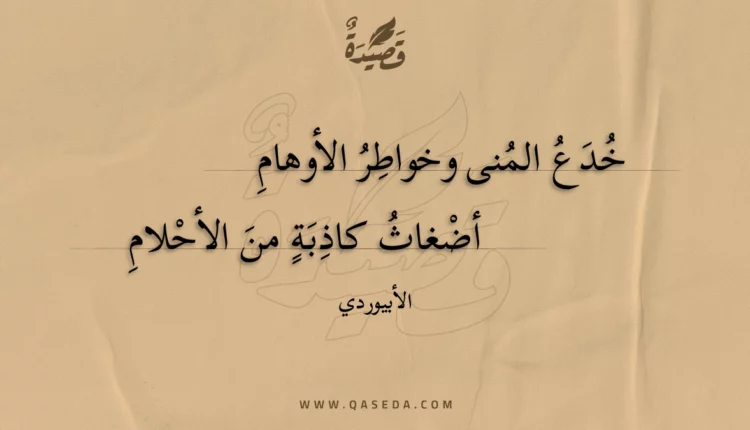 قَصِيدَةٌ
خُدَعُ المُنى وخواطِرُ الأوهامِ
أضْغاثُ كاذِبَةٍ منَ الأحْلامِ
الأبيوردي
WWW.QASEDA.COM